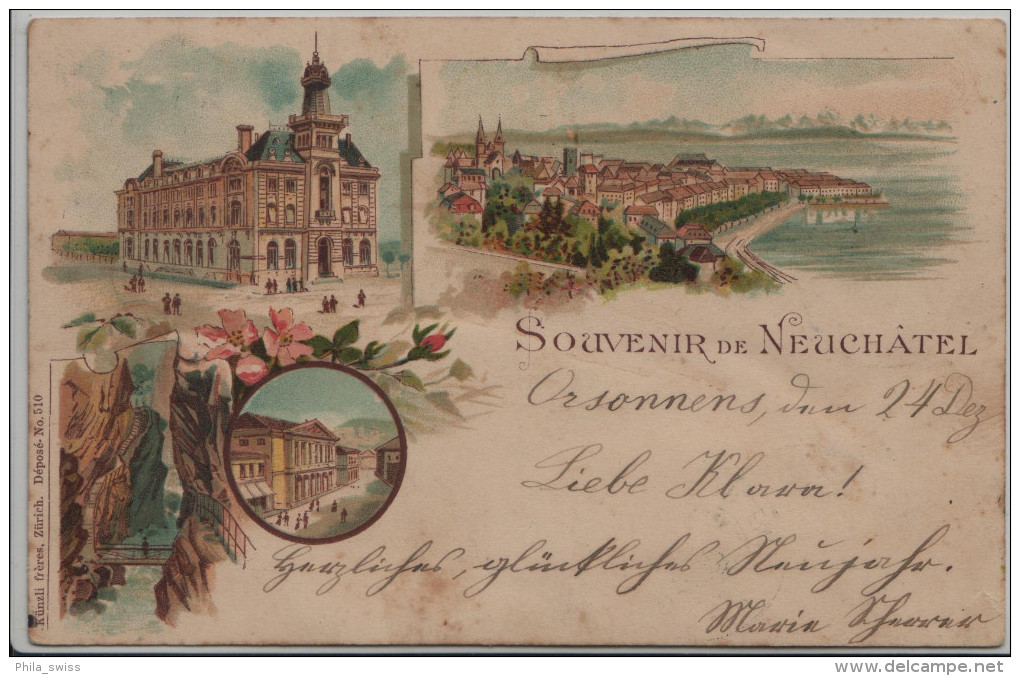 SOUVENIR DE NEUCHÂTEL
Orsonnens, den 24 Dez
Liebe Klara!
Herzliches, glückliches Neujahr.
Marie Scherrer
Künzli frères, Zürich. Déposé- No. 510
Phila_swiss
www.delcampe.net